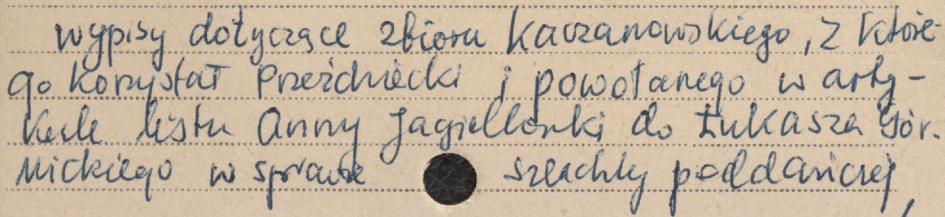 wypisy dotyczące zbioru Kaczanowskiego, z które-
go korzystał Przeździecki i powołanego w arty-
kule listu Anny Jagiellonki do Łukasza Gór-
nickiego w sprawie szlachty poddańczej,